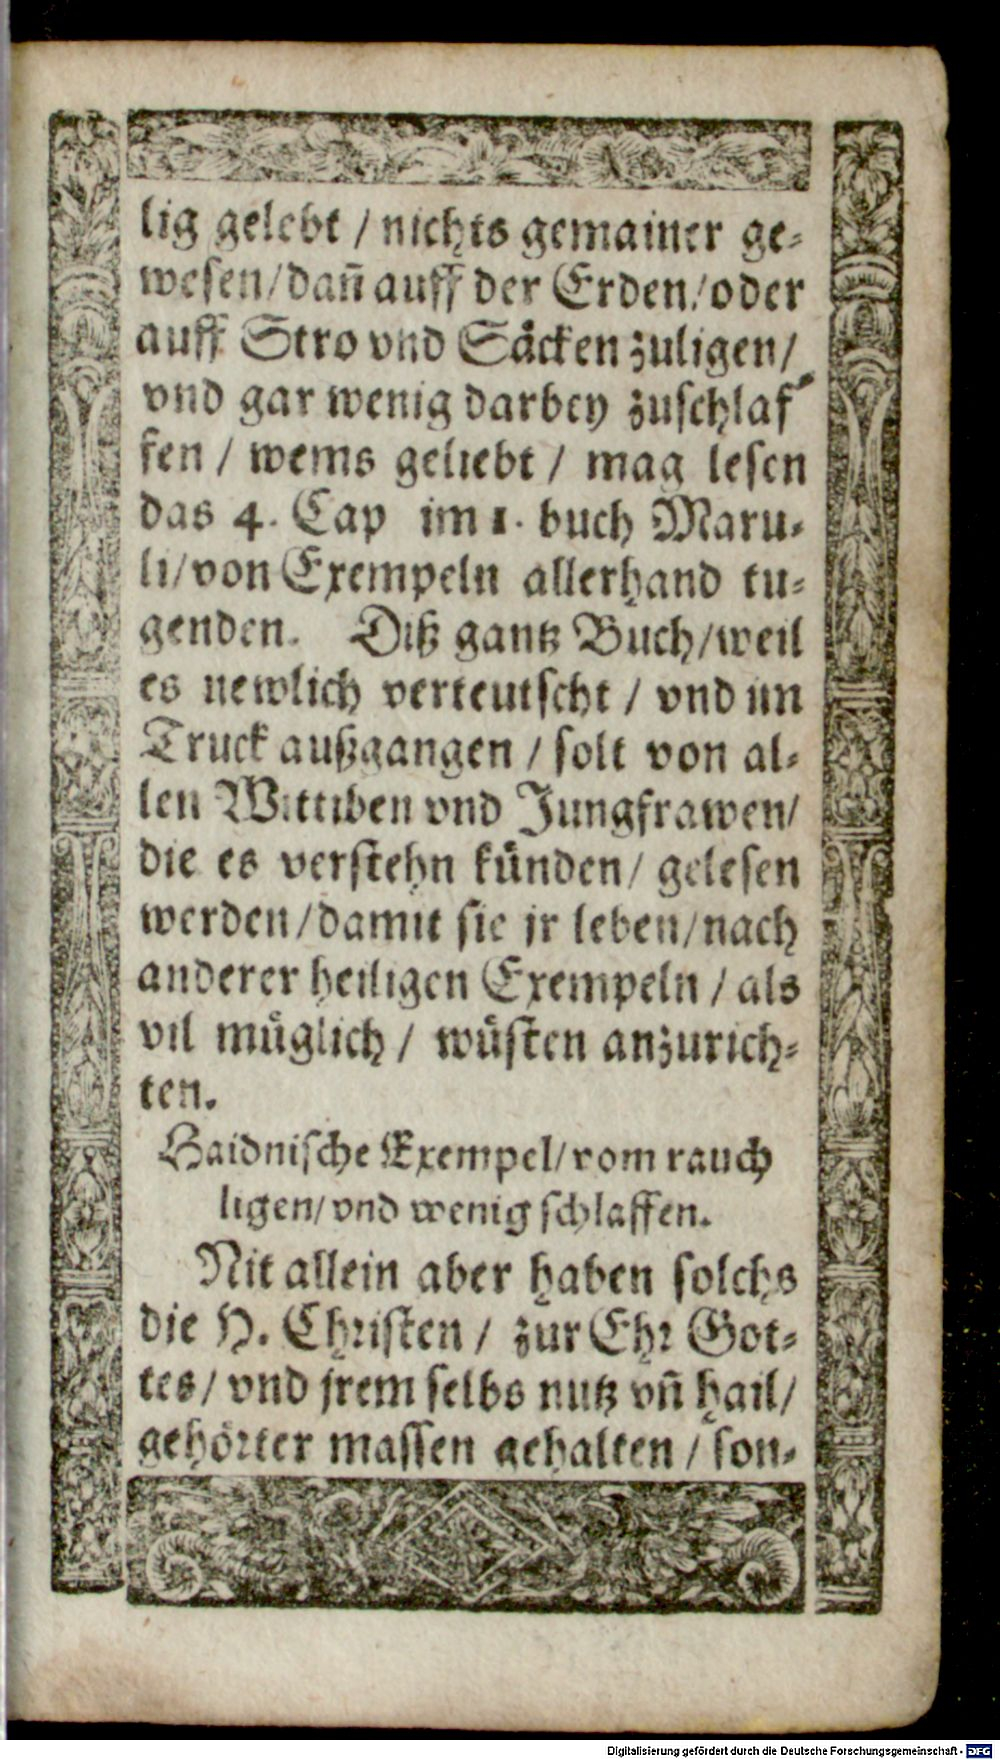 lig gelebt / nichts gemainer ge-
wesen / dañ auff der Erden / oder
auff Stro vnd Säcken zuligen /
vnd gar wenig darbey zuschlaf-
fen / wems geliebt / mag lesen
das 4. Cap im 1. buch Maru-
li / von Exempeln allerhand tu-
genden. Diß gantz Buch / weil
es newlich verteutscht / vnd im
Truck außgangen / solt von al-
len Wittiben vnd Jungfrawen /
die es verstehn künden / gelesen
werden / damit sie jr leben / nach
anderer heiligen Exempeln / als
vil müglich / wüsten anzurich-
ten.
Haidnische Exempel / vom rauch
ligen / vnd wenig schlaffen.
Nit allein aber haben solchs
die H. Christen / zur Ehr Got-
tes / vnd jrem selbs nutz vñ hail /
gehörter massen gehalten / son-
Digitalisierung gefördert durch die Deutsche Forschungsgemeinschaft - DFG